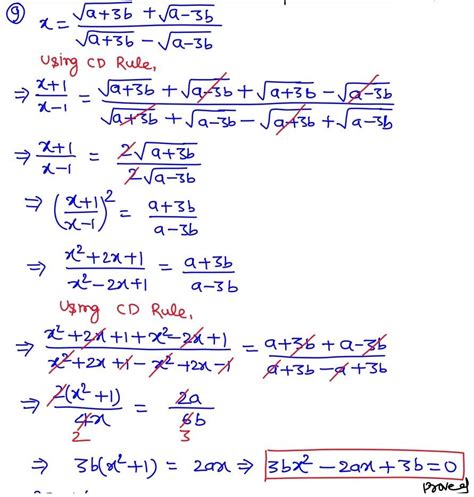 ⑨ x = (√(a+3b) + √(a-3b)) / (√(a+3b) - √(a-3b))
Using CD Rule,
⇒ (x+1)/(x-1) = (√(a+3b) + √(a-3b) + √(a+3b) - √(a-3b)) / (√(a+3b) + √(a-3b) - √(a+3b) + √(a-3b))
⇒ (x+1)/(x-1) = 2√(a+3b) / 2√(a-3b)
⇒ ((x+1)/(x-1))² = (a+3b)/(a-3b)
⇒ (x²+2x+1)/(x²-2x+1) = (a+3b)/(a-3b)
Using CD Rule,
⇒ (x²+2x+1+x²-2x+1)/(x²+2x+1-x²+2x-1) = (a+3b+a-3b)/(a+3b-a+3b)
⇒ 2(x²+1)/4x = 2a/6b
2 3
⇒ 3b(x²+1) = 2ax ⇒ 3bx² - 2ax + 3b = 0
Proved